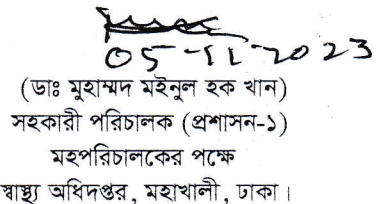 05-11-2023
(ডাঃ মুহাম্মদ মইনুল হক খান)
সহকারী পরিচালক (প্রশাসন-১)
মহপরিচালকের পক্ষে
স্বাস্থ্য অধিদপ্তর, মহাখালী, ঢাকা।